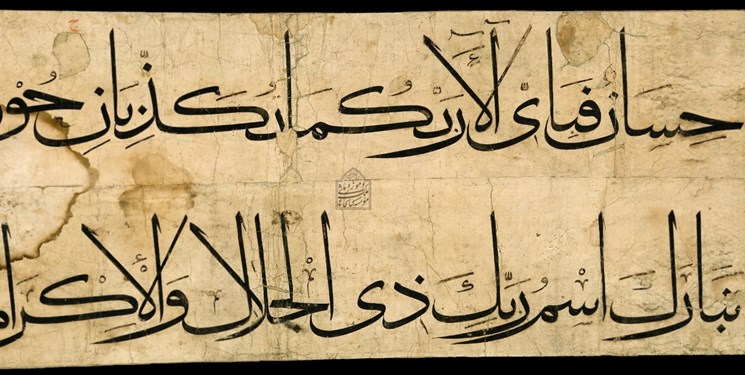 حِسَانٌ فَبِاَىِّ آلَآءِ رَبِّكُمَا تُكَذِّبَانِ حُو
تَبَارَكَ اسْمُ رَبِّكَ ذِى الْجَلَالِ وَالْاِكْرَام